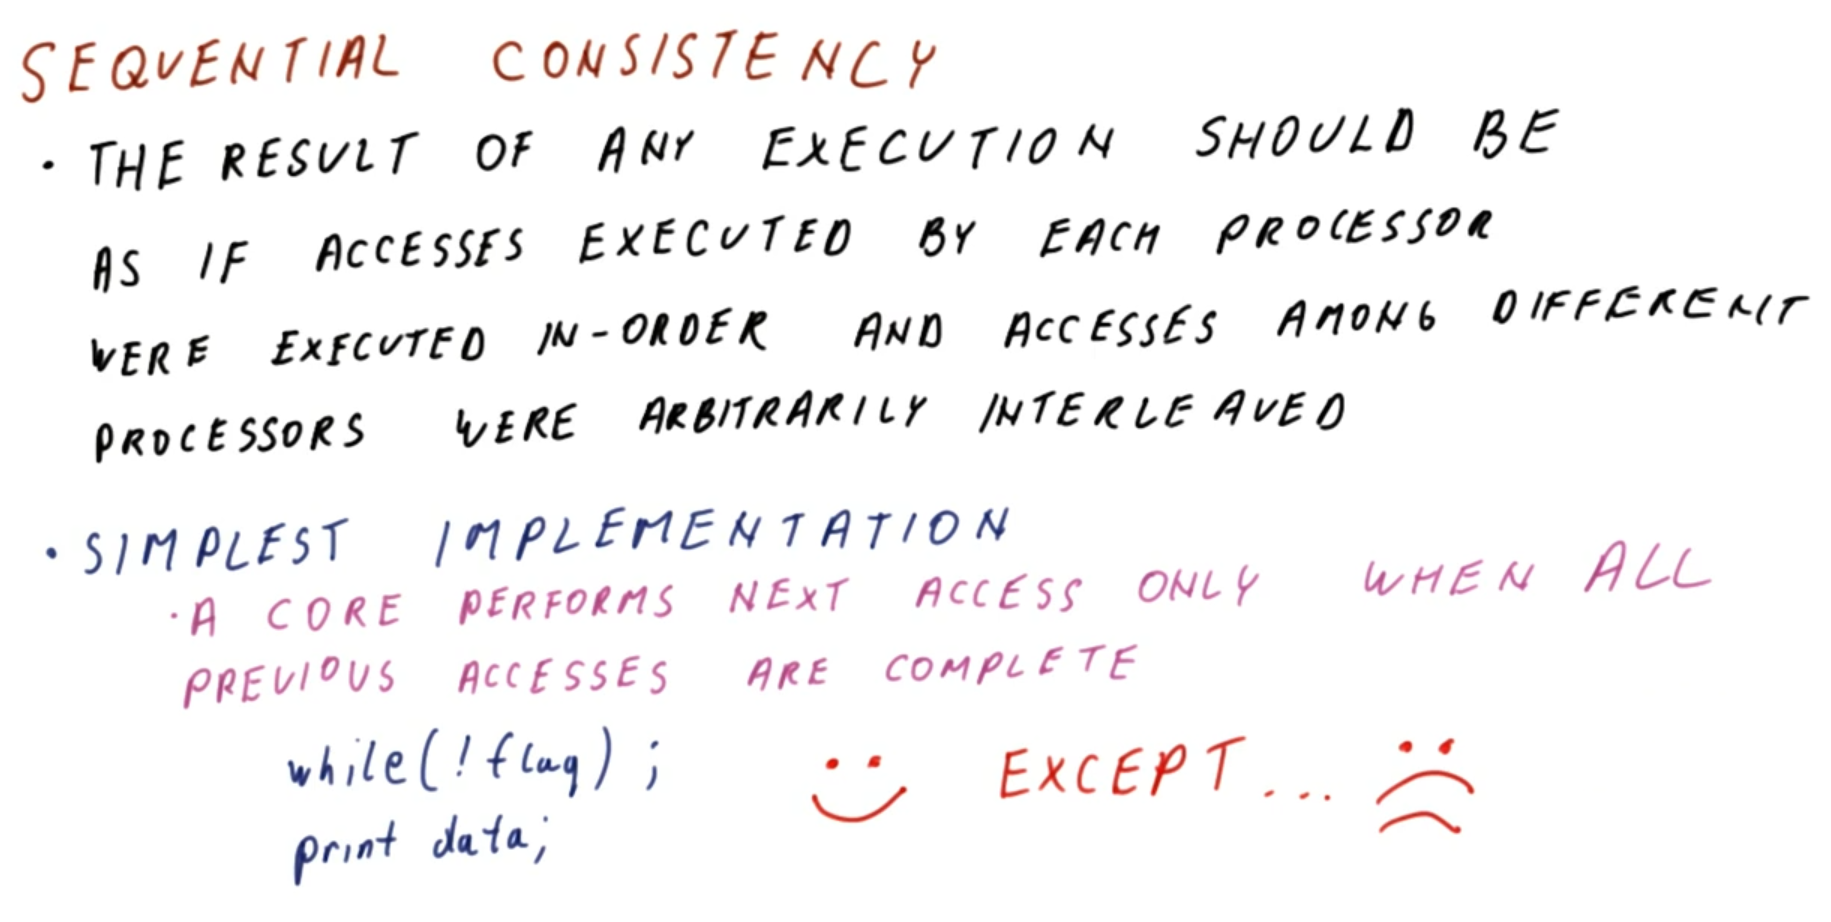 SEQUENTIAL CONSISTENCY
· THE RESULT OF ANY EXECUTION SHOULD BE
AS IF ACCESSES EXECUTED BY EACH PROCESSOR
WERE EXECUTED IN-ORDER AND ACCESSES AMONG DIFFERENT
PROCESSORS WERE ARBITRARILY INTERLEAVED
· SIMPLEST IMPLEMENTATION
· A CORE PERFORMS NEXT ACCESS ONLY WHEN ALL
PREVIOUS ACCESSES ARE COMPLETE
while(!flag); EXCEPT...
print data;